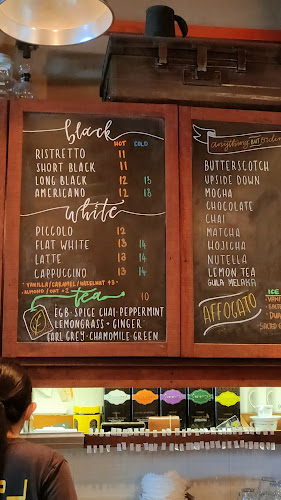 black
HOT COLD
RISTRETTO 11
SHORT BLACK 11
LONG BLACK 12 13
AMERICANO 12 13
white
PICCOLO 12
FLAT WHITE 13 14
LATTE 13 14
CAPPUCCINO 13 14
* VANILLA/CARAMEL/HAZELNUT +3 *
* ALMOND / OAT +2
tea 10
EGB · SPICE CHAI · PEPPERMINT
LEMONGRASS + GINGER
EARL GREY · CHAMOMILE GREEN
anything BUT
BUTTERSCOTCH
UPSIDE DOWN
MOCHA
CHOCOLATE
CHAI
MATCHA
HOJICHA
NUTELLA
LEMON TEA
GULA MELAKA
AFFOGATO
ICE